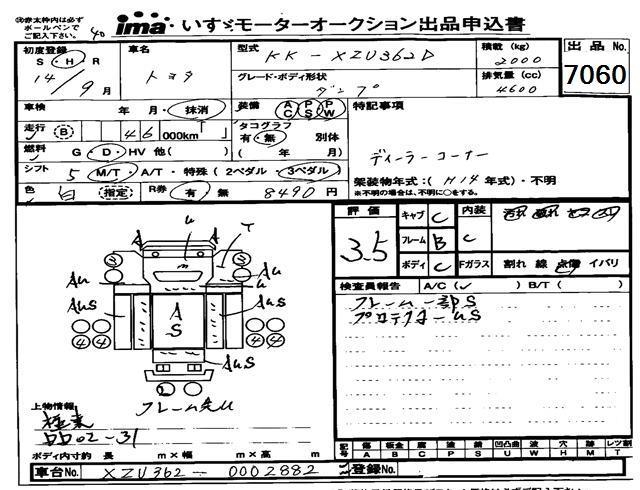 赤太枠内は必ず
ボールペンで
ご記入下さい。
40
ima いすゞモーターオークション出品申込書
初度登録 S・H・R
14/9月
車名
トヨタ
型式 KK-XZU362D
グレード・ボディ形状
ダンプ
積載(kg)
2000
排気量(cc)
4600
出品No.
7060
車検 年 月・抹消
装備 AC PS PW
特記事項
走行 B 46 000km
タコグラフ
有・無 別体
( 年 月)
燃料 G・D・HV 他( )
ディーラーコーナー
シフト 5 M/T・A/T・特殊(2ペダル・3ペダル)
架装物年式:(H14年式)・不明
※不明の場合は、不明に○をする。
色 白 指定 R券 有 無 8490円
評価
3.5
キャブ C
フレーム B
ボディ C
内装 C
Fガラス 割れ 線 点傷 イバリ
検査員報告 A/C(✓) B/T( )
フレーム一部S
プロテクターUS
A
U
T
AU
AU
AUS
AUS
A
S
AUS
4 4
4 4
フレーム先U
上物情報
極東
DD02-31
ボディ内寸約 長 m×幅 m×高 m
記号 傷 板金 腐 波 錆 凹凸曲 波 穴 跡 レツ割
A B C P S U W H M T
車台No. XZU362-0002882
登録No.